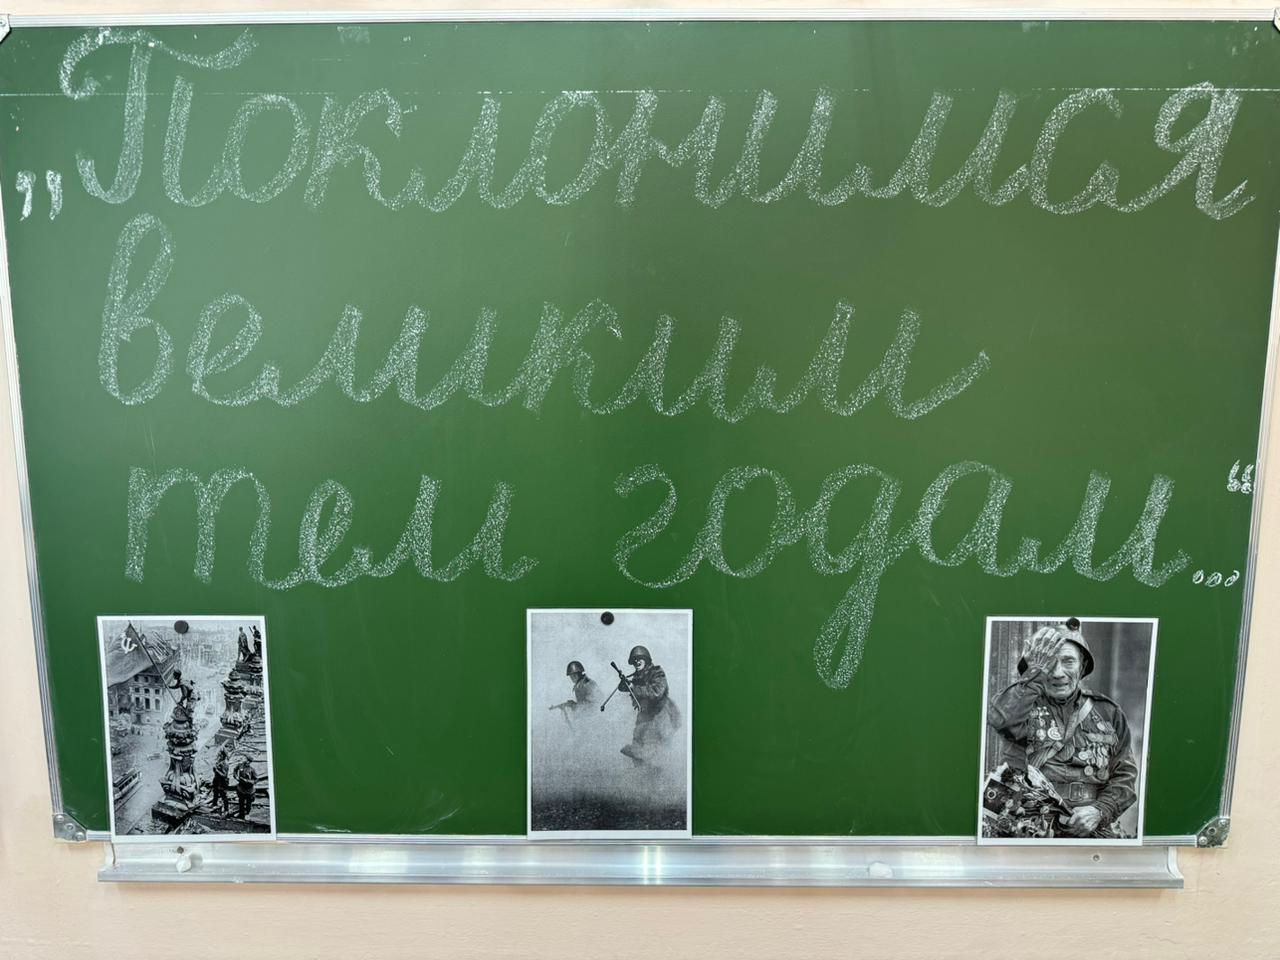 „Поклонимся
великим
тем годам...“